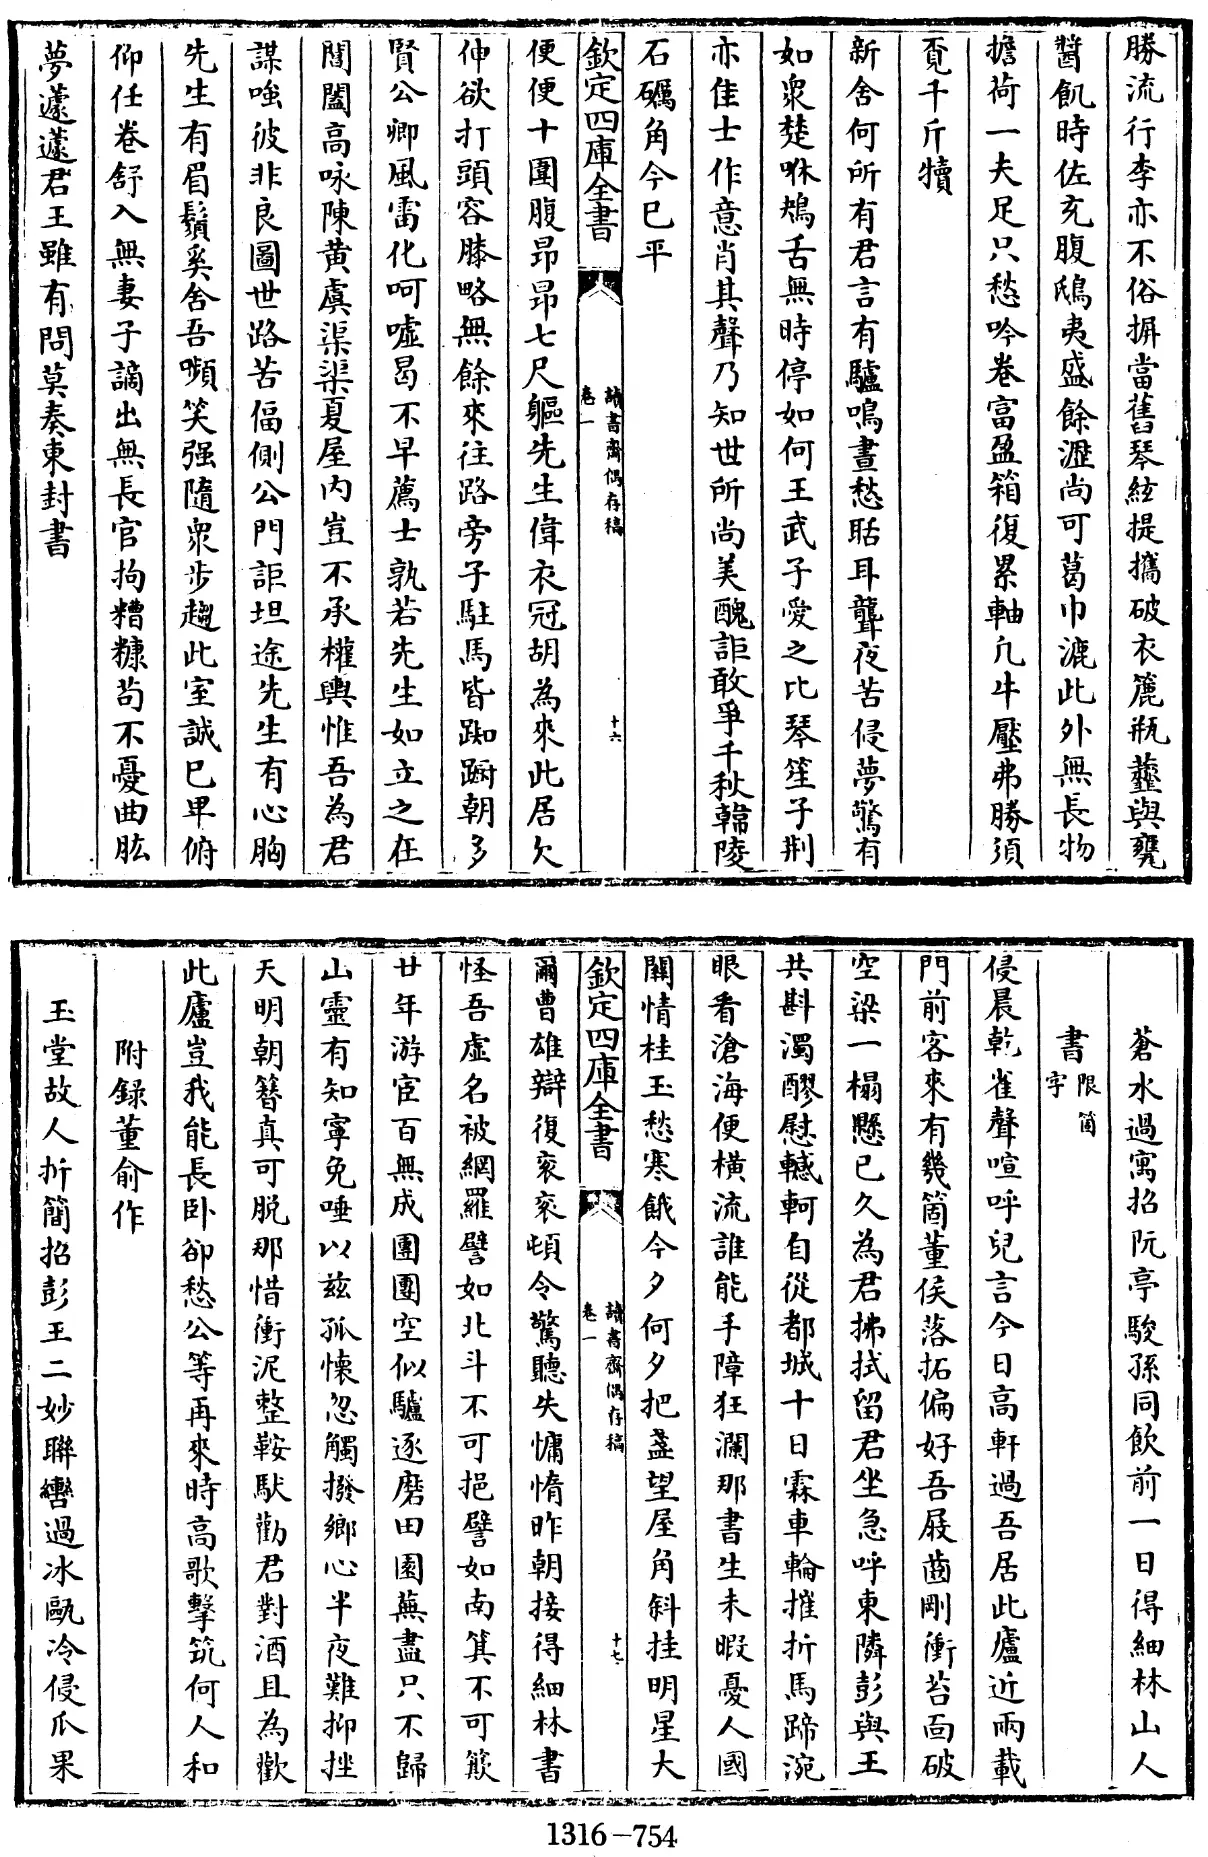 勝流行李亦不俗摒當舊琴絃提攜破衣簏瓶虀與甕
醬飢時佐充腹鴟夷盛餘瀝尚可葛巾漉此外無長物
擔荷一夫足只愁吟卷富盈箱復累軸几牛壓弗勝須
覓千斤犢
新舍何所有君言有驢鳴晝愁聒耳聾夜苦侵夢驚有
如衆楚咻鴂舌無時停如何王武子愛之比琴笙子荆
亦佳士作意肖其聲乃知世所尚美醜詎敢爭千秋韓陵
石礪角今已平
欽定四庫全書
讀書齋偶存稿
卷一
十六
便便十圍腹昂昂七尺軀先生偉衣冠胡為來此居欠
伸欲打頭容膝略無餘來往路旁子駐馬皆踟蹰朝多
賢公卿風雷化呵噓曷不早薦士孰若先生如立之在
閶闔高咏陳黄虞渠渠夏屋内豈不承權輿惟吾為君
謀嗤彼非良圖世路苦偪側公門詎坦途先生有心胸
先生有眉鬚奚舍吾嚬笑强隨衆步趨此室誠已卑俯
仰任卷舒入無妻子謫出無長官拘糟糠苟不憂曲肱
夢蘧蘧君王雖有問莫奏東封書
蒼水過寓招阮亭駿孫同飲前一日得細林山人
書限箇字
侵晨乾雀聲喧呼兒言今日高軒過吾居此廬近兩載
門前客來有幾箇董侯落拓偏好吾屐齒剛衝苔面破
空梁一榻懸已久為君拂拭留君坐急呼東隣彭與王
共斟濁醪慰轗軻自從都城十日霖車輪摧折馬蹄涴
眼看滄海便横流誰能手障狂瀾那書生未暇憂人國
關情桂玉愁寒餓今夕何夕把盞望屋角斜挂明星大
欽定四庫全書
讀書齋偶存稿
卷一
十七
爾曹雄辯復衮衮頓令驚聽失慵惰昨朝接得細林書
怪吾虚名被網羅譬如北斗不可挹譬如南箕不可簸
廿年游宦百無成團團空似驢逐磨田園蕪盡只不歸
山靈有知寧免唾以兹孤懷忽觸撥鄉心半夜難抑挫
天明朝簪真可脱那惜衝泥整鞍馱勸君對酒且為歡
此廬豈我能長卧卻愁公等再來時高歌擊筑何人和
附録董俞作
玉堂故人折簡招彭王二妙聯轡過冰甌冷侵瓜果
1316-754